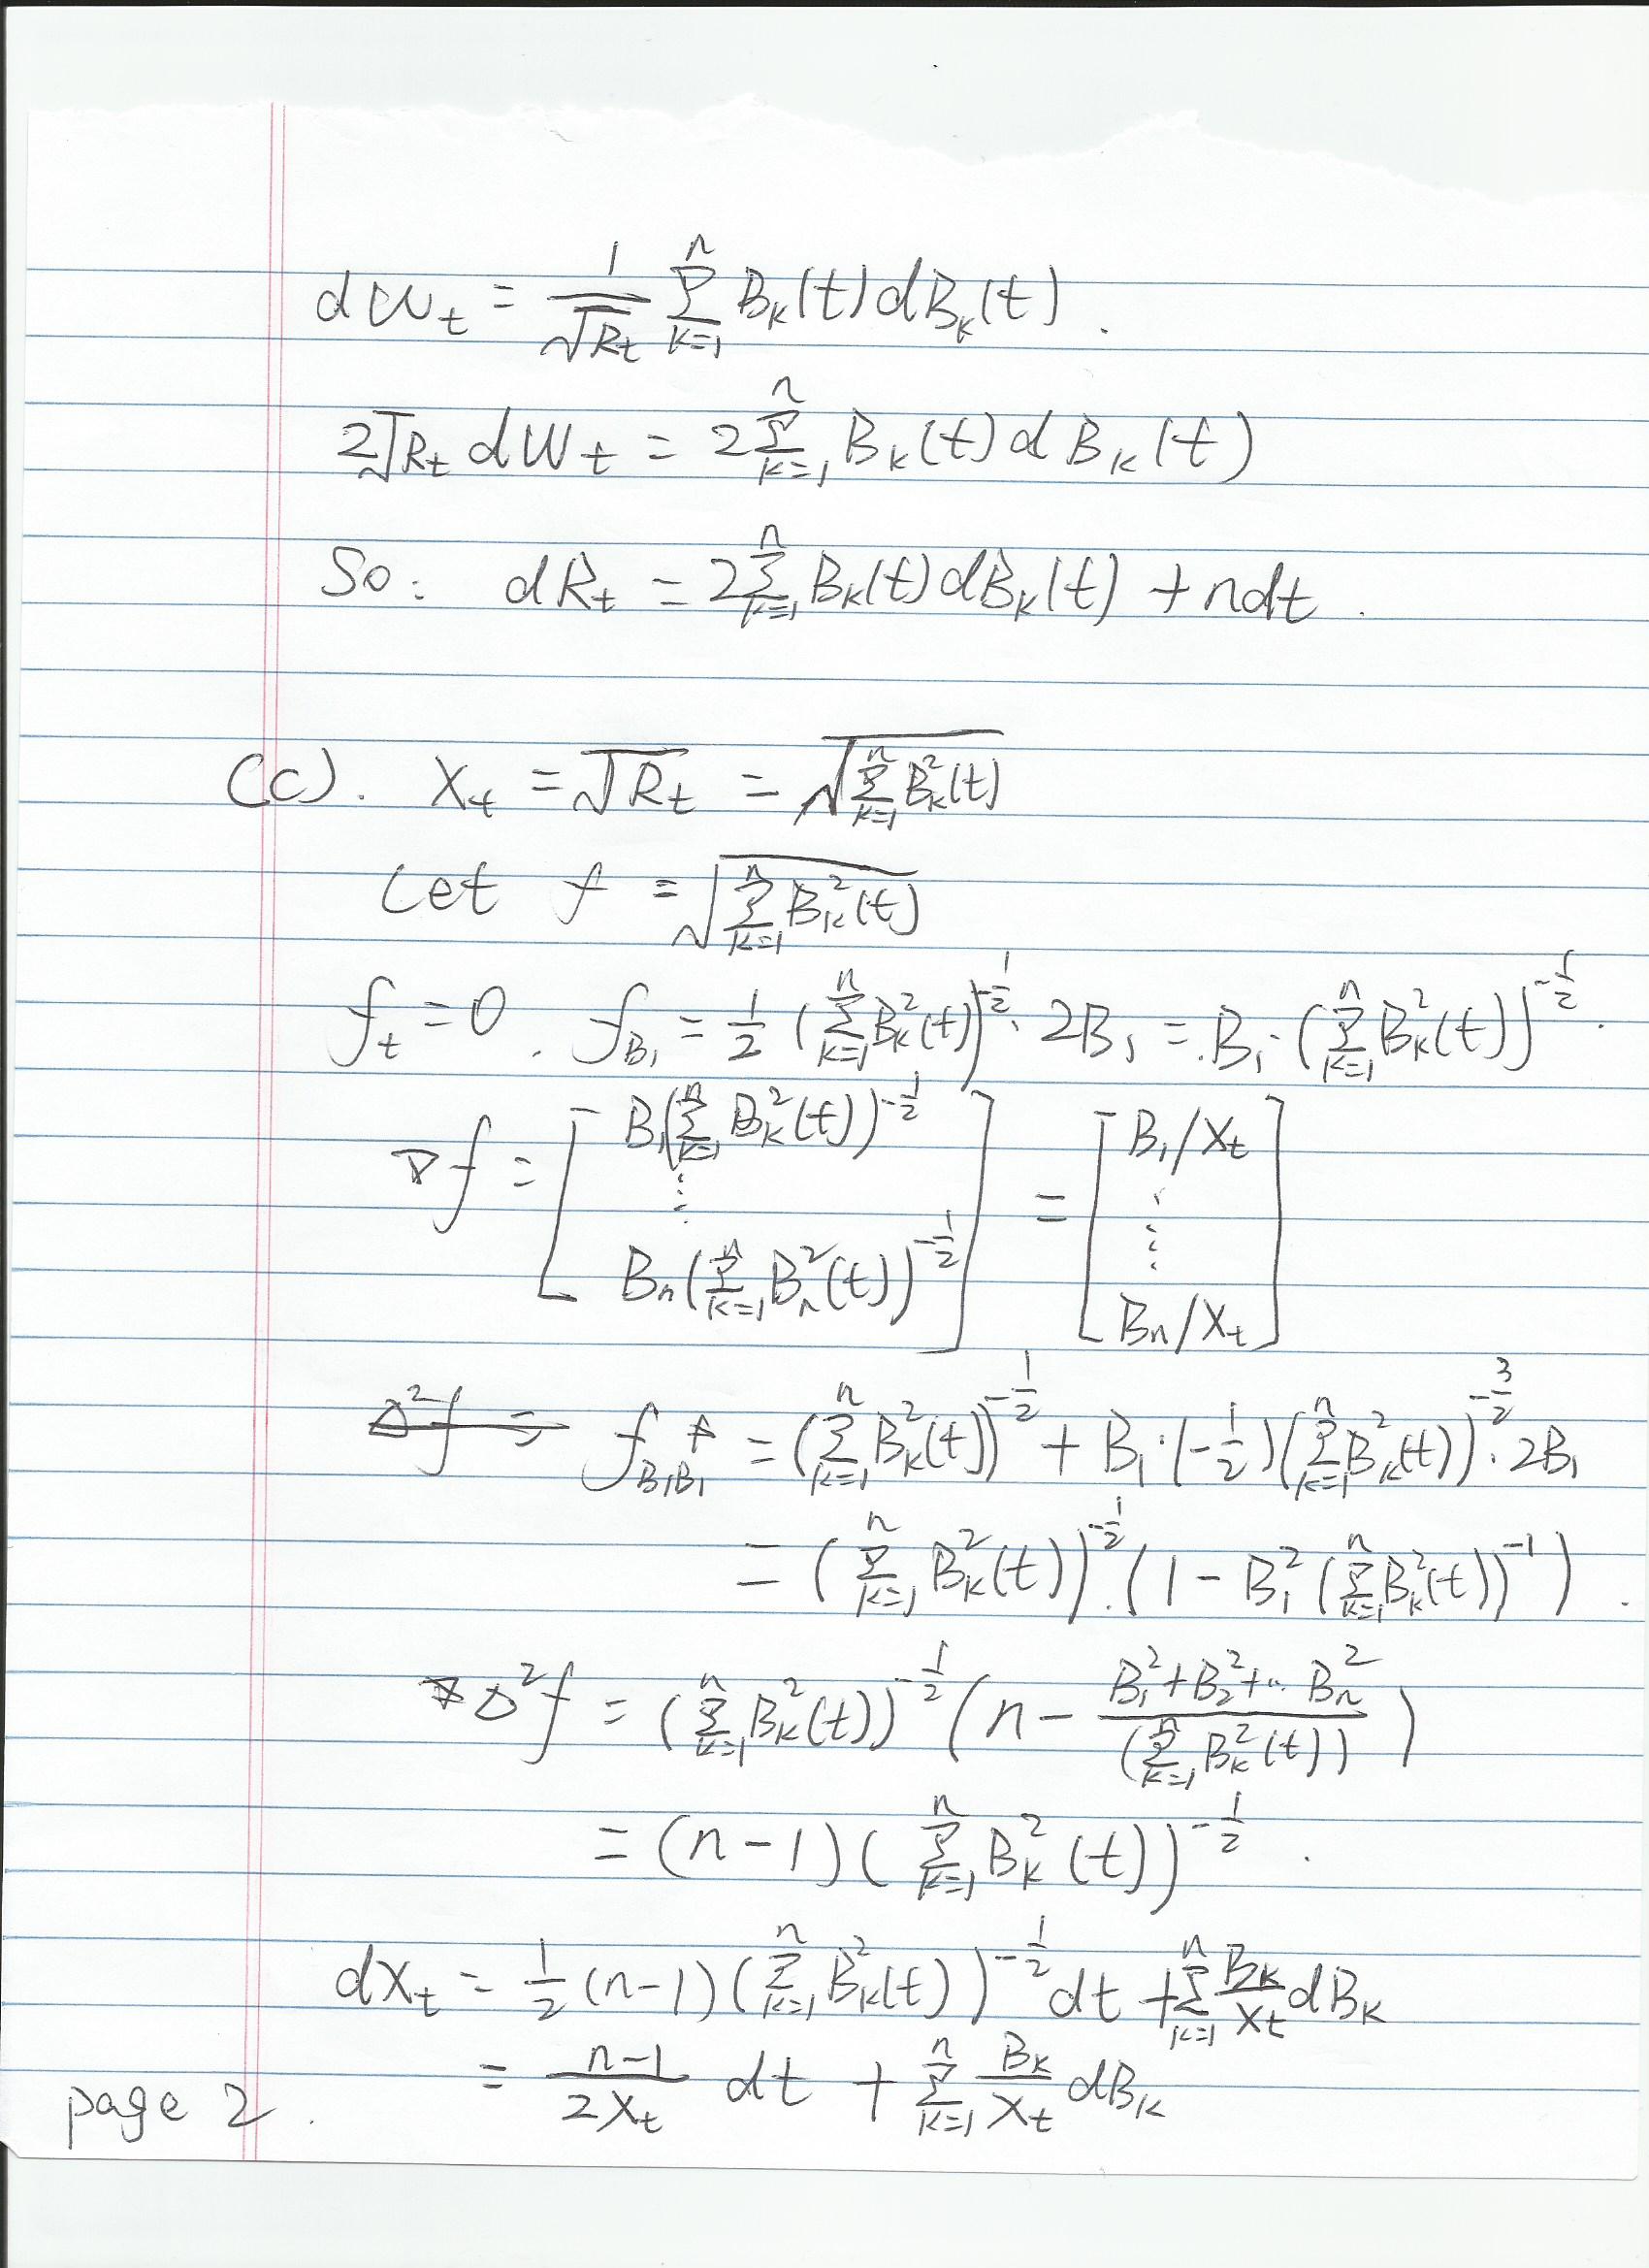 dW_t = 1/√R_t Σ_{k=1}^{n} B_k(t) dB_k(t).
2√R_t dW_t = 2Σ_{k=1}^{n} B_k(t) dB_k(t)
So: dR_t = 2Σ_{k=1}^{n} B_k(t) dB_k(t) + ndt.
(c). X_t = √R_t = √(Σ_{k=1}^{n} B_k^2(t))
Let f = √(Σ_{k=1}^{n} B_k^2(t))
f_t = 0. f_{B_1} = 1/2 (Σ_{k=1}^{n} B_k^2(t))^{-1/2} · 2B_1 = B_1 · (Σ_{k=1}^{n} B_k^2(t))^{-1/2}.
∇f = [B_1(Σ_{k=1}^{n} B_k^2(t))^{-1/2} ⋮ B_n(Σ_{k=1}^{n} B_n^2(t))^{-1/2}] = [B_1/X_t ⋮ B_n/X_t]
f_{B_1B_1} = (Σ_{k=1}^{n} B_k^2(t))^{-1/2} + B_1 · (-1/2)(Σ_{k=1}^{n} B_k^2(t))^{-3/2} · 2B_1
= (Σ_{k=1}^{n} B_k^2(t))^{-1/2} · (1 - B_1^2 (Σ_{k=1}^{n} B_k^2(t))^{-1}).
Δ^2 f = (Σ_{k=1}^{n} B_k^2(t))^{-1/2} (n - (B_1^2 + B_2^2 + ·· B_n^2)/(Σ_{k=1}^{n} B_k^2(t)))
= (n-1)(Σ_{k=1}^{n} B_k^2(t))^{-1/2}.
dX_t = 1/2 (n-1)(Σ_{k=1}^{n} B_k^2(t))^{-1/2} dt + Σ_{k=1}^{n} B_k/X_t dB_k
= (n-1)/(2X_t) dt + Σ_{k=1}^{n} B_k/X_t dB_k
page 2.